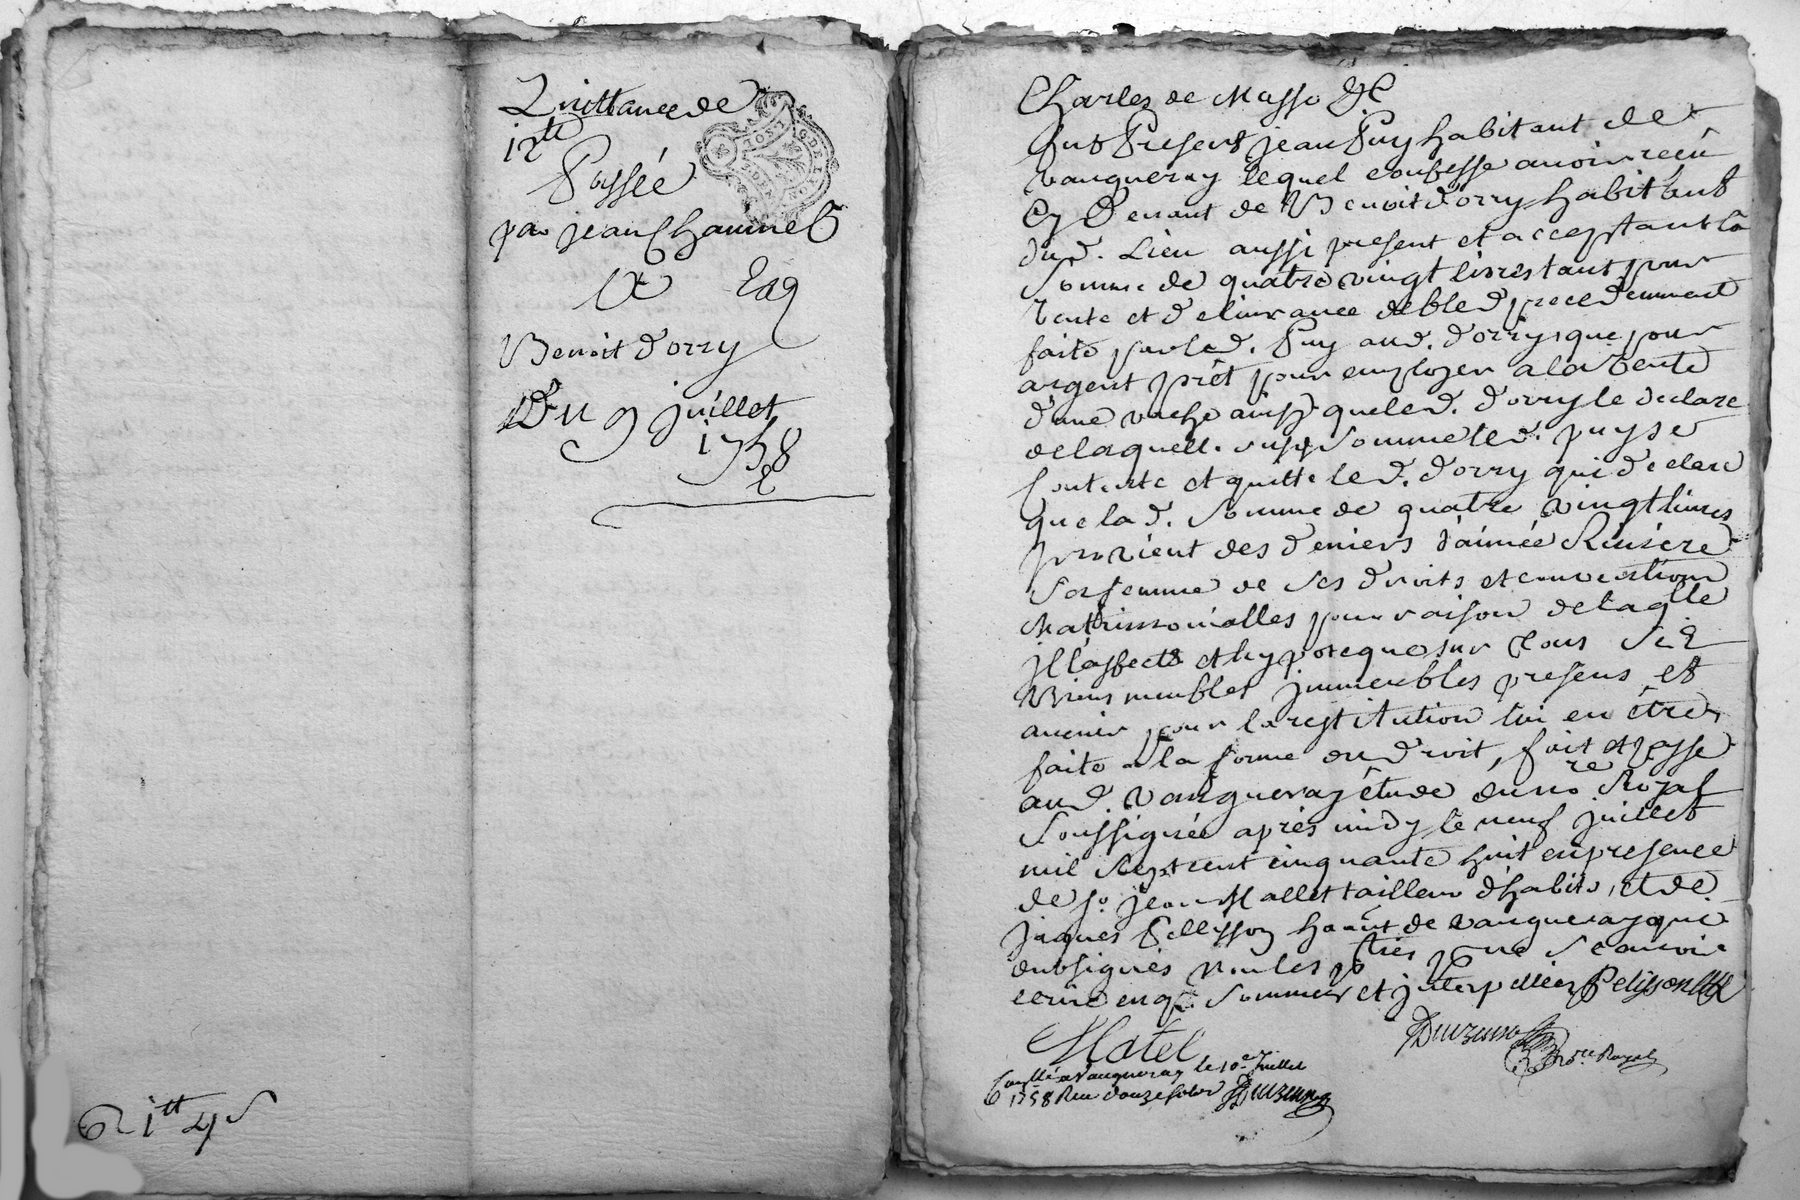 Quittance de
12tt
Passée
par jean Chaumel
Benoit d'orry
Du 9 juillet
1758
1tt 4s
Charles de Masso &c
fut Present jean Puy habitant de
vaugneray lequel confesse avoir reçû
Cy devant de Benoit d'orry habitant
dud. Lieu aussi present et acceptant la
somme de quatre vingt livres tant pour
vente et delivrance de bled precedemment
faite par led. Puy aud. d'orry, que pour
argent prêt pour employer a la vente
d'une vache ainsy que led. d'orry le declare
de laquelle susd. somme led. puy se
contente et quitte led. d'orry qui declare
que lad. somme de quatre vingt livres
provient des deniers d'aimée Riviere
sa femme de ses droits et convention
Matrimonialles pour raison de laqlle
il affecte et hypoteque sur tous ses
Biens meubles immeubles presens et
avenir pour la restitution lui en être
faite a la forme du droit, fait et passé
aud. vaugneray étude du nore Royal
soussigné après midy le neuf juillet
mil sept cent cinquante huit en presence
de sr. jean Mallet tailleur d'habits, et de
jaques Pellisson habant de vaugneray qui
ont signés non les parties pour ne scavoir
ecrire enq. sommées et interpellées Pelisson
Matel
nore Royal
Conllé a Vaugneray le 10e juillet
1758 Reçu douze sols